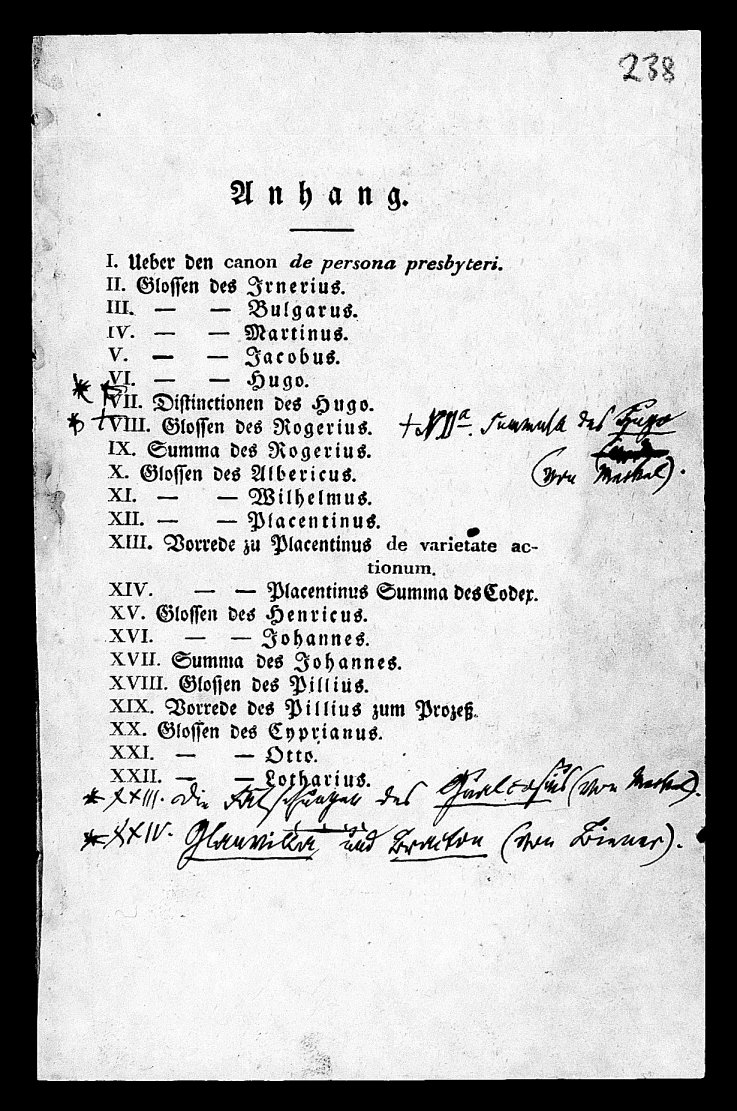 238
Anhang.
I. Ueber den canon de persona presbyteri.
II. Glossen des Irnerius.
III. — — Bulgarus.
IV. — — Martinus.
V. — — Jacobus.
VI. — — Hugo.
VII. Distinctionen des Hugo.
VIII. Glossen des Rogerius. † VIIa. Summula des Hugo
IX. Summa des Rogerius.
X. Glossen des Albericus. (von Merkel).
XI. — — Wilhelmus.
XII. — — Placentinus.
XIII. Vorrede zu Placentinus de varietate ac-
tionum.
XIV. — — Placentinus Summa des Codex.
XV. Glossen des Henricus.
XVI. — — Johannes.
XVII. Summa des Johannes.
XVIII. Glossen des Pillius.
XIX. Vorrede des Pillius zum Prozeß.
XX. Glossen des Cyprianus.
XXI. — — Otto.
XXII. — — Lotharius.
* XXIII. Die Fälschungen des Gualcosius (von Merkel).
* XXIV. Glanvilla und Bracton (von Biener).